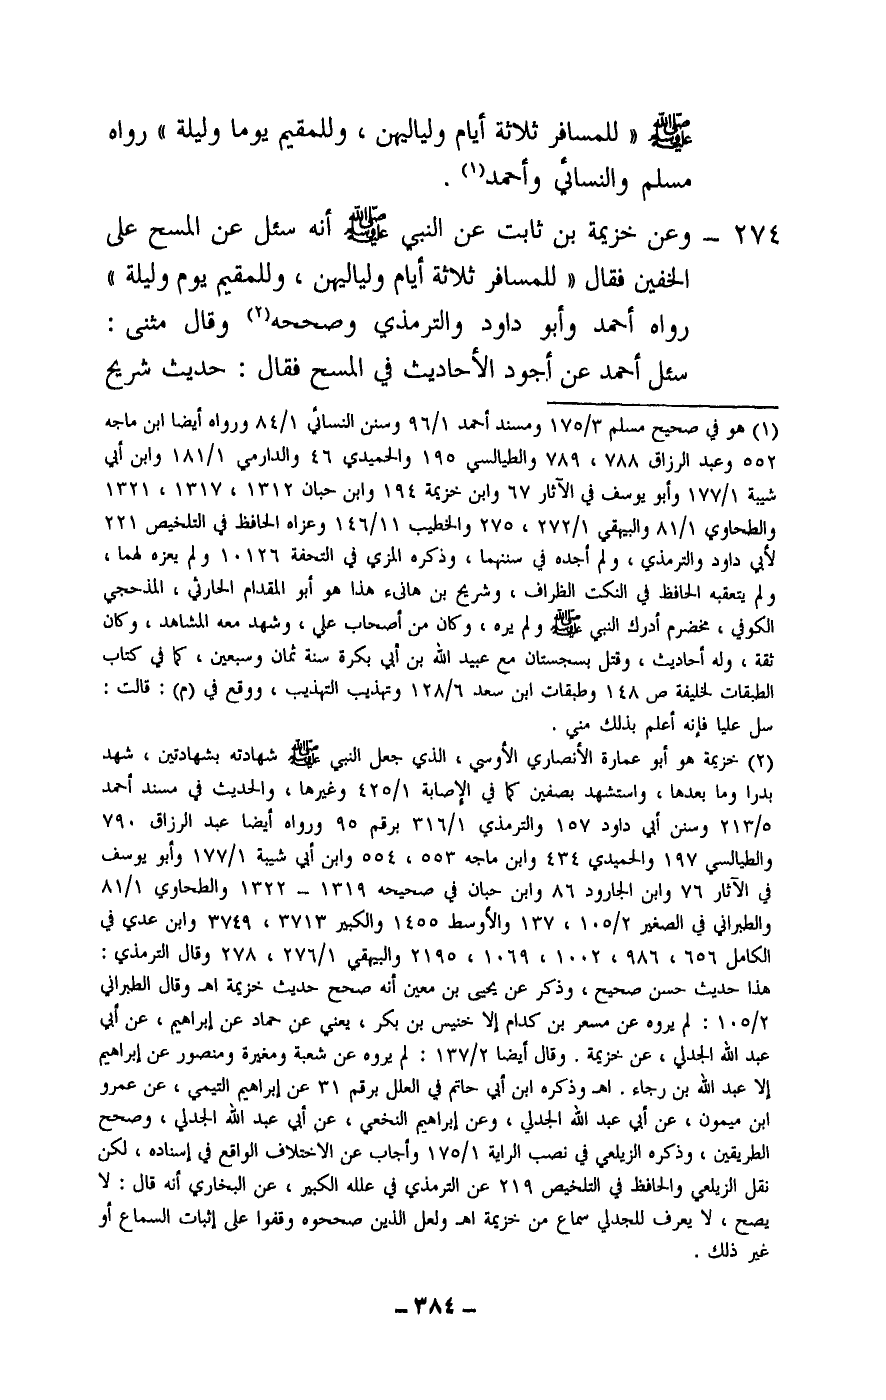 ﷺ « للمسافر ثلاثة أيام ولياليهن ، وللمقيم يوما وليلة » رواه
مسلم والنسائي وأحمد(١) .
٢٧٤ – وعن خزيمة بن ثابت عن النبي ﷺ أنه سئل عن المسح على
الخفين فقال « للمسافر ثلاثة أيام ولياليهن ، وللمقيم يوم وليلة »
رواه أحمد وأبو داود والترمذي وصححه(٢) وقال مثنى :
سئل أحمد عن أجود الأحاديث في المسح فقال : حديث شريح
(١) هو في صحيح مسلم ١٧٥/٣ ومسند أحمد ٩٦/١ وسنن النسائي ٨٤/١ ورواه أيضا ابن ماجه
٥٥٢ وعبد الرزاق ٧٨٨ ، ٧٨٩ والطيالسي ١٩٥ والحميدي ٤٦ والدارمي ١٨١/١ وابن أبي
شيبة ١٧٧/١ وأبو يوسف في الآثار ٦٧ وابن خزيمة ١٩٤ وابن حبان ١٣١٢ ، ١٣١٧ ، ١٣٢١
والطحاوي ٨١/١ والبيهقي ٢٧٢/١ ، ٢٧٥ والخطيب ١٤٦/١١ وعزاه الحافظ في التلخيص ٢٢١
لأبي داود والترمذي ، ولم أجده في سننهما ، وذكره المزي في التحفة ١٠١٢٦ ولم يعزه لهما ،
ولم يتعقبه الحافظ في النكت الظراف ، وشريح بن هانىء هذا هو أبو المقدام الحارثي ، المذحجي
الكوفي ، مخضرم أدرك النبي ﷺ ولم يره ، وكان من أصحاب علي ، وشهد معه المشاهد ، وكان
ثقة ، وله أحاديث ، وقتل بسجستان مع عبيد الله بن أبي بكرة سنة ثمان وسبعين ، كما في كتاب
الطبقات لخليفة ص ١٤٨ وطبقات ابن سعد ١٢٨/٦ وتهذيب التهذيب ، ووقع في (م) : قالت :
سل عليا فإنه أعلم بذلك مني .
(٢) خزيمة هو أبو عمارة الأنصاري الأوسي ، الذي جعل النبي ﷺ شهادته بشهادتين ، شهد
بدرا وما بعدها ، واستشهد بصفين كما في الإصابة ٤٢٥/١ وغيرها ، والحديث في مسند أحمد
٢١٣/٥ وسنن أبي داود ١٥٧ والترمذي ٣١٦/١ برقم ٩٥ ورواه أيضا عبد الرزاق ٧٩٠
والطيالسي ١٩٧ والحميدي ٤٣٤ وابن ماجه ٥٥٣ ، ٥٥٤ وابن أبي شيبة ١٧٧/١ وأبو يوسف
في الآثار ٧٦ وابن الجارود ٨٦ وابن حبان في صحيحه ١٣١٩ – ١٣٢٢ والطحاوي ٨١/١
والطبراني في الصغير ١٠٥/٢ ، ١٣٧ والأوسط ١٤٥٥ والكبير ٣٧١٣ ، ٣٧٤٩ وابن عدي في
الكامل ٦٥٦ ، ٩٨٦ ، ١٠٠٢ ، ١٠٦٩ ، ٢١٩٥ والبيهقي ٢٧٦/١ ، ٢٧٨ وقال الترمذي :
هذا حديث حسن صحيح ، وذكر عن يحيى بن معين أنه صحح حديث خزيمة اهـ وقال الطبراني
١٠٥/٢ : لم يروه عن مسعر بن كدام إلا خنيس بن بكر ، يعني عن حماد عن إبراهيم ، عن أبي
عبد الله الجدلي ، عن خزيمة . وقال أيضا ١٣٧/٢ : لم يروه عن شعبة ومغيرة ومنصور عن إبراهيم
إلا عبد الله بن رجاء . اهـ وذكره ابن أبي حاتم في العلل برقم ٣١ عن إبراهيم التيمي ، عن عمرو
ابن ميمون ، عن أبي عبد الله الجدلي ، وعن إبراهيم النخعي ، عن أبي عبد الله الجدلي ، وصحح
الطريقين ، وذكره الزيلعي في نصب الراية ١٧٥/١ وأجاب عن الاختلاف الواقع في إسناده ، لكن
نقل الزيلعي والحافظ في التلخيص ٢١٩ عن الترمذي في علله الكبير ، عن البخاري أنه قال : لا
يصح ، لا يعرف للجدلي سماع من خزيمة اهـ ولعل الذين صححوه وقفوا على إثبات السماع أو
غير ذلك .
– ٣٨٤ –